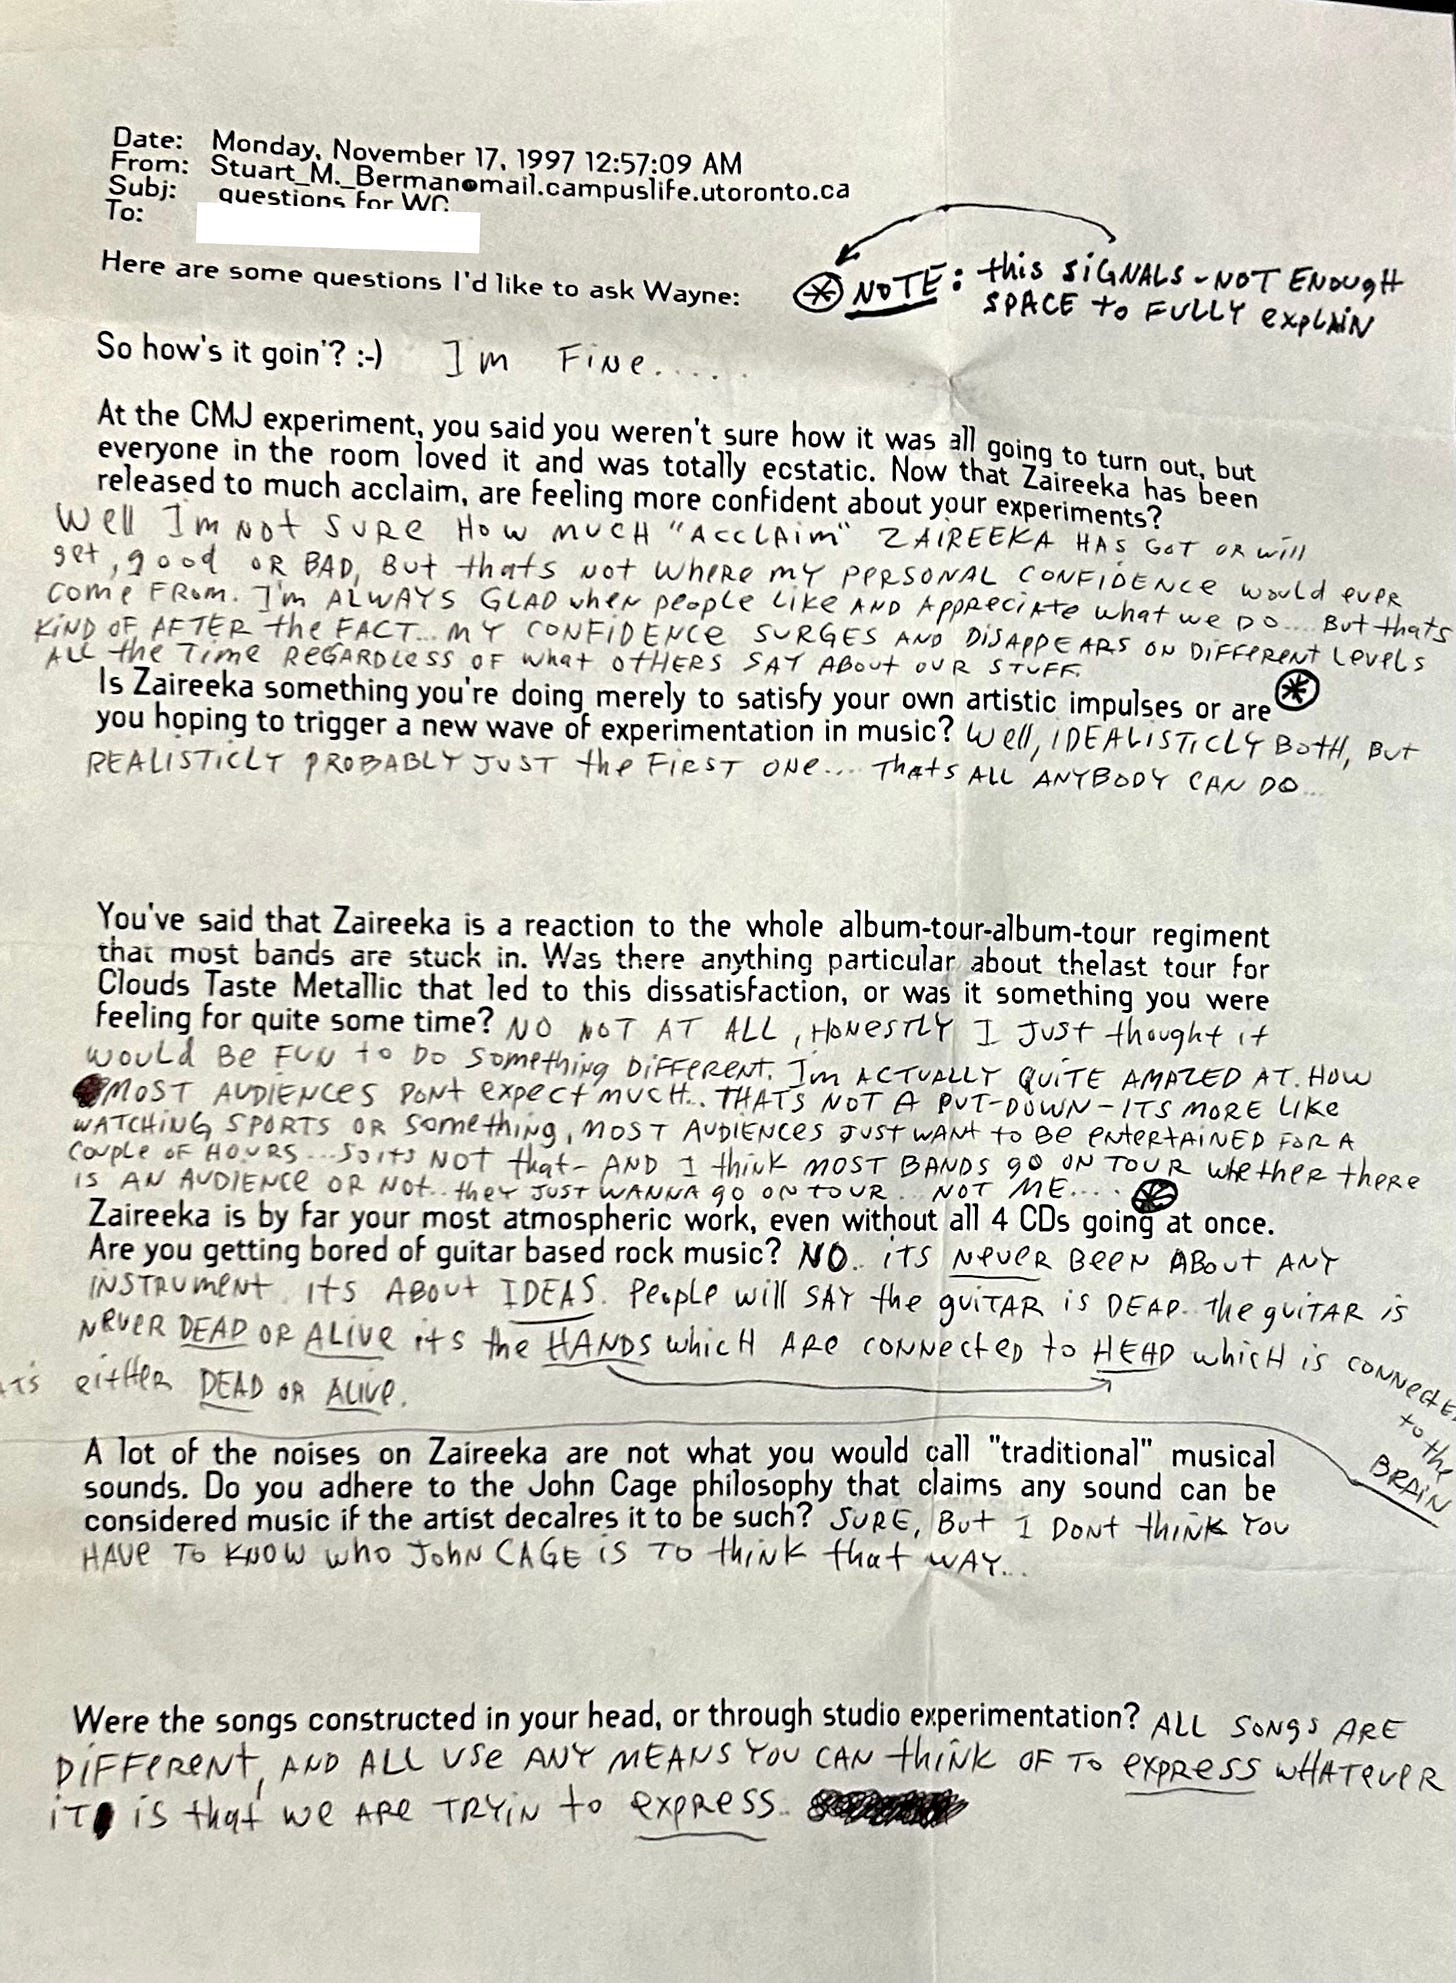 Date: Monday, November 17, 1997 12:57:09 AM
From: Stuart_M._Berman@mail.campuslife.utoronto.ca
Subj: questions for WC
To:
Here are some questions I'd like to ask Wayne:
⊛ NOTE: this SiGNALS - NOT ENOugH
SPACE to FULLY explAiN
So how's it goin'? :-) I'm FiNe.....
At the CMJ experiment, you said you weren't sure how it was all going to turn out, but
everyone in the room loved it and was totally ecstatic. Now that Zaireeka has been
released to much acclaim, are feeling more confident about your experiments?
Well I'm NOT SURE HOW MUCH "AccLAim" ZAIREEKA HAS GOT OR Will
get, good OR BAD, BUt thats NOT WHERE MY PERSONAL CONFIDENCE would ever
Come FROM. I'm ALWAYS GLAD when people LiKE AND AppReciAte what we DO.... But thats
KIND OF AFTER the FACT... MY CONFIDENCE SURGES AND DISAPPEARS ON DIFFERENT Levels
ALL the Time REGARDLESS OF what OTHERS SAY ABOUt OUR STUFF.
Is Zaireeka something you're doing merely to satisfy your own artistic impulses or are ⊛
you hoping to trigger a new wave of experimentation in music? Well, IDEALISTICLY BOTH, BUT
REALISTICLY PROBABLY JUST the FIRST ONe.... ThatS ALL ANYBODY CAN DO...
You've said that Zaireeka is a reaction to the whole album-tour-album-tour regiment
that most bands are stuck in. Was there anything particular about thelast tour for
Clouds Taste Metallic that led to this dissatisfaction, or was it something you were
feeling for quite some time? NO NOT AT ALL, HONESTLY I Just thought it
would Be FUN to DO Something DiFFERENT. I'm ACTUALLY QUITE AMAZED AT. HOW
MOST AUDIENCES DONt expect much... THATS NOT A PUT-DOWN - ITS MORE LiKE
WATCHING SPORTS OR SOmething, MOST AUDIENCES JUST WANT to BE ENTERTAINED FOR A
COUPLe OF HOURS... So its NOT that - AND I think MOST BANDS go ON TOUR whether there
iS AN AUDIENCe OR NOT.. they JUST WANNA go ON TOUR... NOT ME.... ⊛
Zaireeka is by far your most atmospheric work, even without all 4 CDs going at once.
Are you getting bored of guitar based rock music? NO.. iTS NeveR BEEN ABOUt ANY
INSTRUMENT. ITS ABOUt IDEAS. People will SAY the guiTAR iS DEAD.. the guiTAR iS
NEVER DEAD OR ALIVE iTS the HANDS which ARe CONNected to HEAD which is CONNecte
to the
BRAIN
ATS either DEAD OR ALive.
A lot of the noises on Zaireeka are not what you would call "traditional" musical
sounds. Do you adhere to the John Cage philosophy that claims any sound can be
considered music if the artist decalres it to be such? SURE, BUt I DONt thiNK YOU
HAVe TO KNOW who JOhN CAGE iS TO thiNK that WAY...
Were the songs constructed in your head, or through studio experimentation? ALL SONgS ARE
DIFFERENT, AND ALL USe ANY MEANS YOU CAN thiNK OF TO eXPRESS WHATEVER
iT is that we ARe TRYiN to eXPRESS..